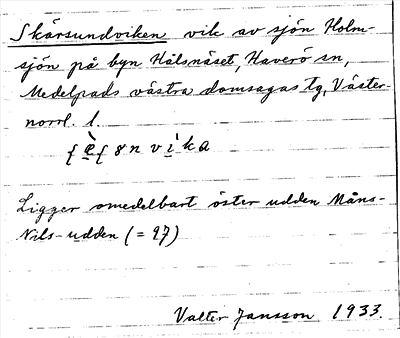 Skärsundviken vik av sjön Holm-
sjön på byn Hålsnäset, Haverö sn,
Medelpads västra domsagas tg, Väster-
norrl. l.
Ligger omedelbart öster udden Måns-
Nils-udden (= 27)
Valter Jansson 1933.